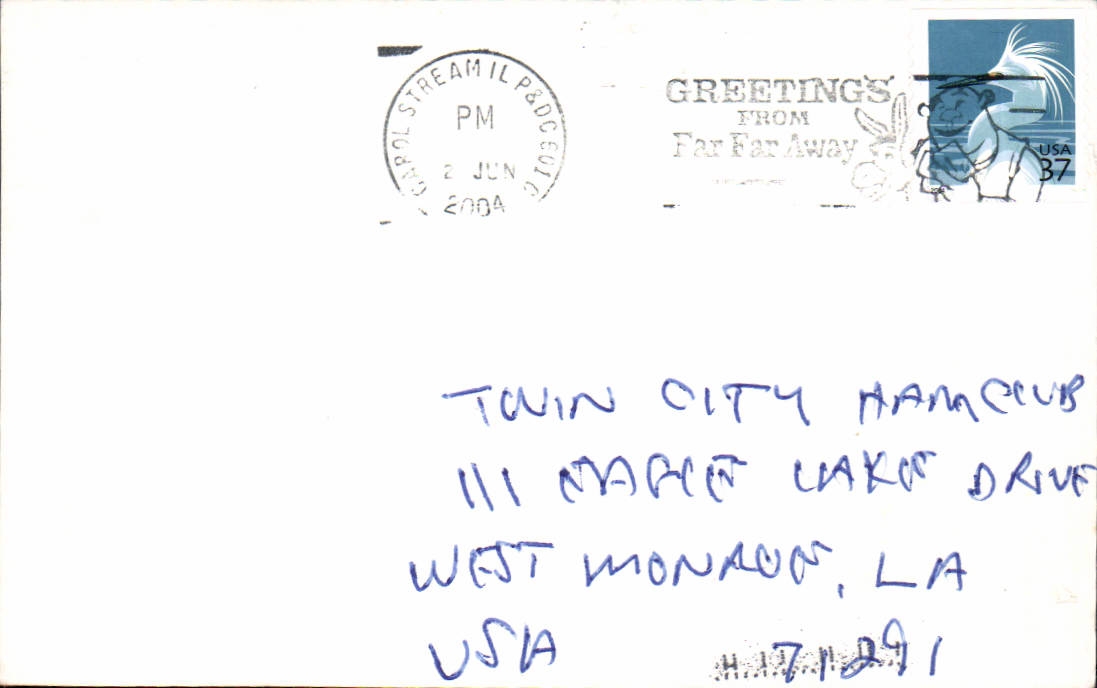 CAROL STREAM IL P&DC 601
PM
2 JUN
2004
GREETINGS
FROM
Far Far Away
USA
37
TWIN CITY HAM CLUB
111 EAGLE LAKE DRIVE
WEST MONROE, LA
USA 71291